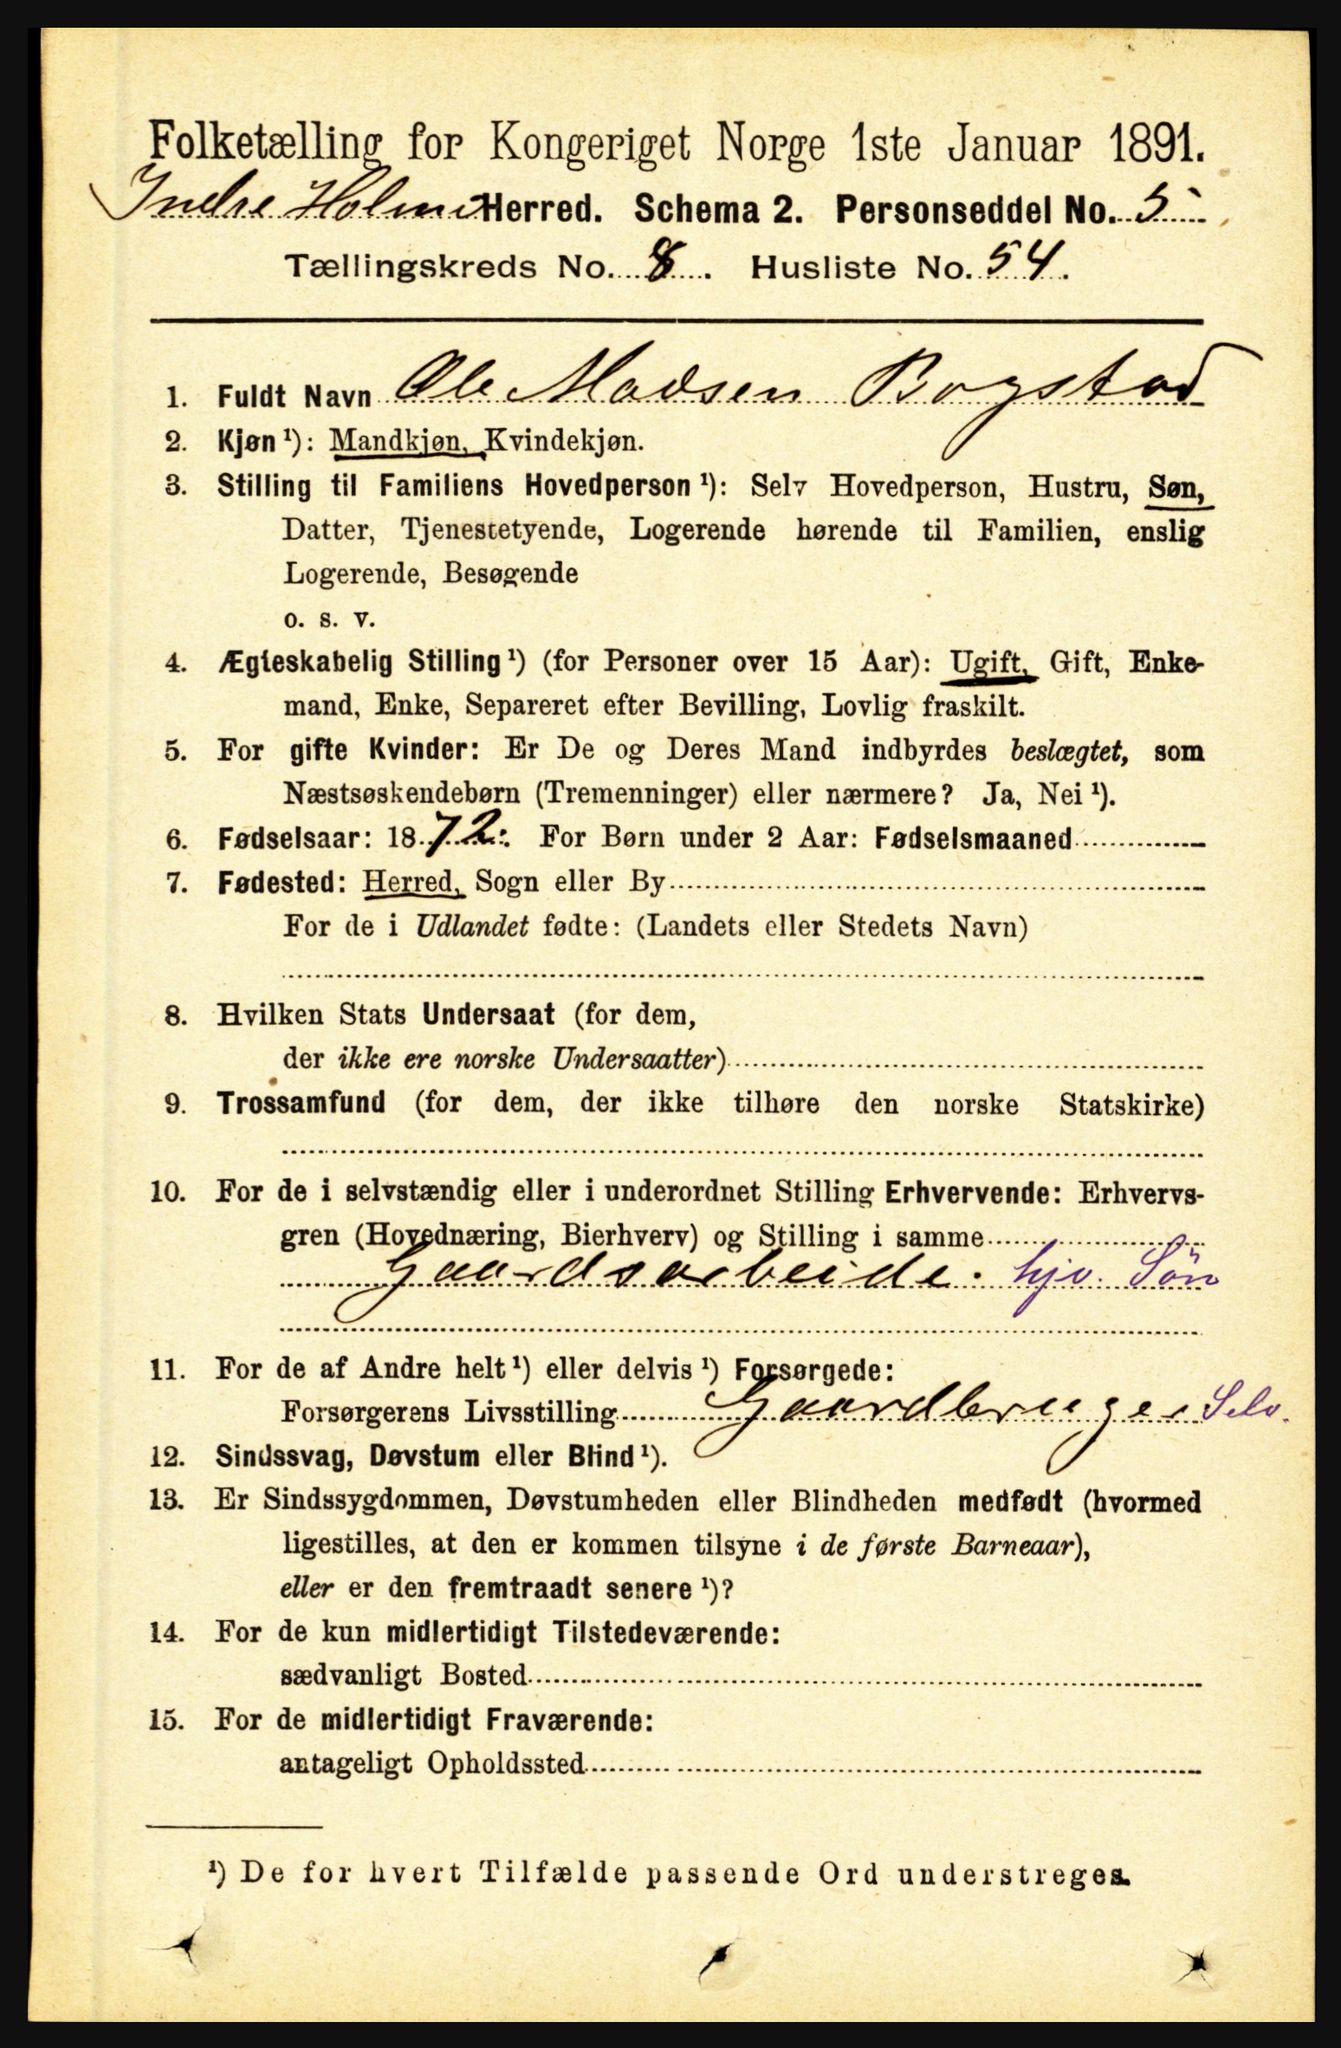 Folketælling for Kongeriget Norge 1ste Januar 1891.
Indre Holme Herred. Schema 2. Personseddel No. 5
Tællingskreds No. 8. Husliste No. 54.
1. Fuldt Navn Ole Madsen Bogstad
2. Kjøn ¹): Mandkjøn, Kvindekjøn.
3. Stilling til Familiens Hovedperson ¹): Selv Hovedperson, Hustru, Søn,
Datter, Tjenestetyende, Logerende hørende til Familien, enslig
Logerende, Besøgende
o. s. v.
4. Ægteskabelig Stilling ¹) (for Personer over 15 Aar): Ugift, Gift, Enke-
mand, Enke, Separeret efter Bevilling, Lovlig fraskilt.
5. For gifte Kvinder: Er De og Deres Mand indbyrdes beslægtet, som
Næstsøskendebørn (Tremenninger) eller nærmere? Ja, Nei ¹).
6. Fødselsaar: 1872. For Børn under 2 Aar: Fødselsmaaned
7. Fødested: Herred, Sogn eller By
For de i Udlandet fødte: (Landets eller Stedets Navn)
8. Hvilken Stats Undersaat (for dem,
der ikke ere norske Undersaatter)
9. Trossamfund (for dem, der ikke tilhøre den norske Statskirke)
10. For de i selvstændig eller i underordnet Stilling Erhvervende: Erhvervs-
gren (Hovednæring, Bierhverv) og Stilling i samme
Gaardsarbeide. hjv. Sön
11. For de af Andre helt ¹) eller delvis ¹) Forsørgede:
Forsørgerens Livsstilling Gaardbruger Selv.
12. Sindssvag, Døvstum eller Blind ¹).
13. Er Sindssygdommen, Døvstumheden eller Blindheden medfødt (hvormed
ligestilles, at den er kommen tilsyne i de første Barneaar),
eller er den fremtraadt senere ¹)?
14. For de kun midlertidigt Tilstedeværende:
sædvanligt Bosted
15. For de midlertidigt Fraværende:
antageligt Opholdssted
¹) De for hvert Tilfælde passende Ord understreges.